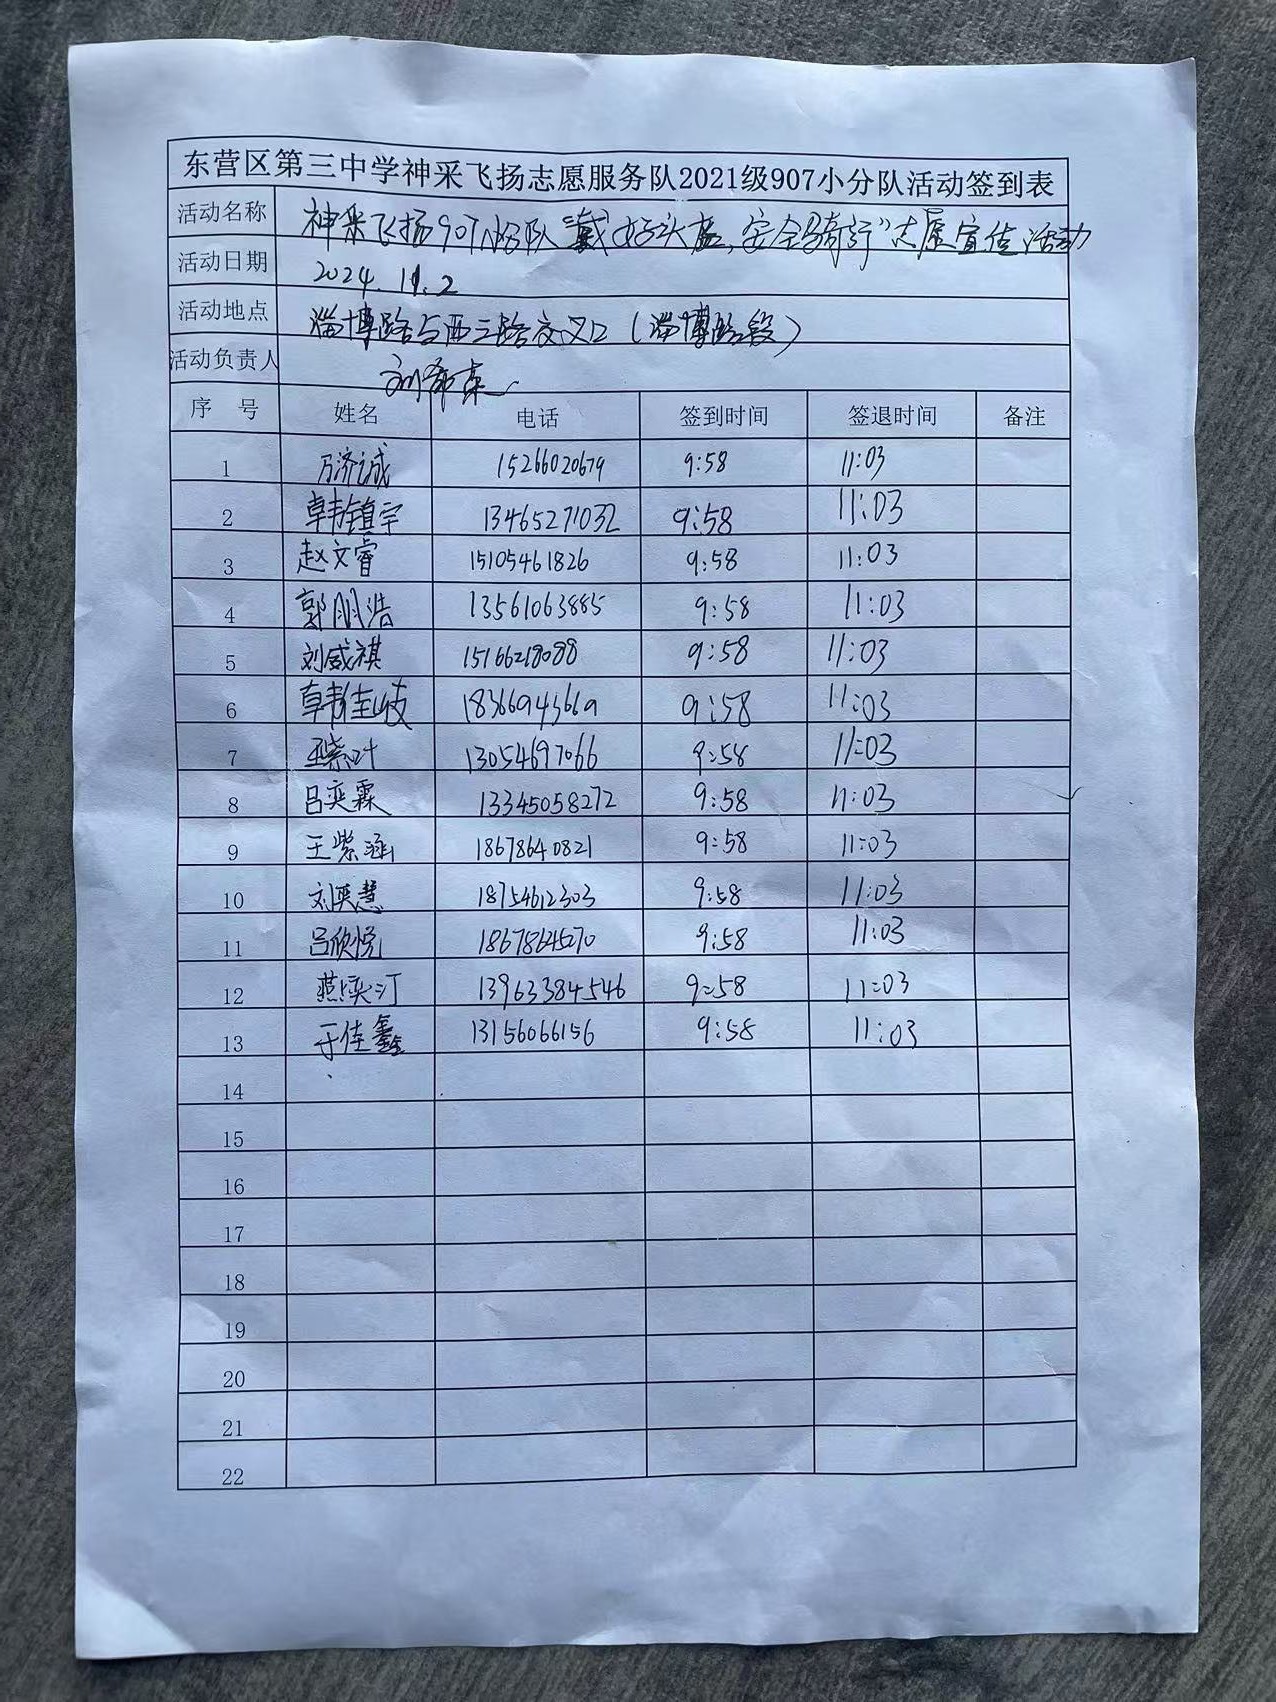 东营区第三中学神采飞扬志愿服务队2021级907小分队活动签到表
活动名称 神采飞扬907小分队"戴好头盔,安全骑行"志愿宣传活动
活动日期 2024.11.2
活动地点 淄博路与西三路交叉口(淄博路段)
活动负责人 刘希
序 号 姓名 电话 签到时间 签退时间 备注
1 万济诚 15266020679 9:58 11:03
2 韩镇宇 13465271032 9:58 11:03
3 赵文睿 15105461826 9:58 11:03
4 郭朋浩 13561063885 9:58 11:03
5 刘威祺 15166218088 9:58 11:03
6 韩佳岐 9:58 11:03
7 13054697066 9:58 11:03
8 吕奕霖 13345058272 9:58 11:03
9 王紫涵 18678640821 9:58 11:03
10 刘奕慧 18754612303 9:58 11:03
11 吕欣悦 18678645270 9:58 11:03
12 燕奕汀 13963384546 9:58 11:03
13 于佳鑫 13156066156 9:58 11:03
14
15
16
17
18
19
20
21
22